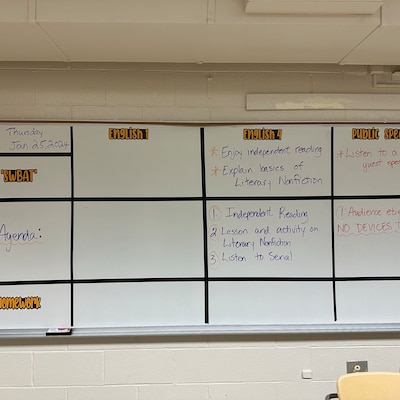 Thursday
Jan 25, 2024
English 1
English 4
Public Spe
"SWBAT"
* Enjoy independent reading
* Explain basics of
Literary Nonfiction
* Listen to a
guest spe
Agenda:
1. Independent Reading
2. Lesson and activity on
Literary Nonfiction
3. Listen to Serial
1. Audience et
NO DEVICES
Homework